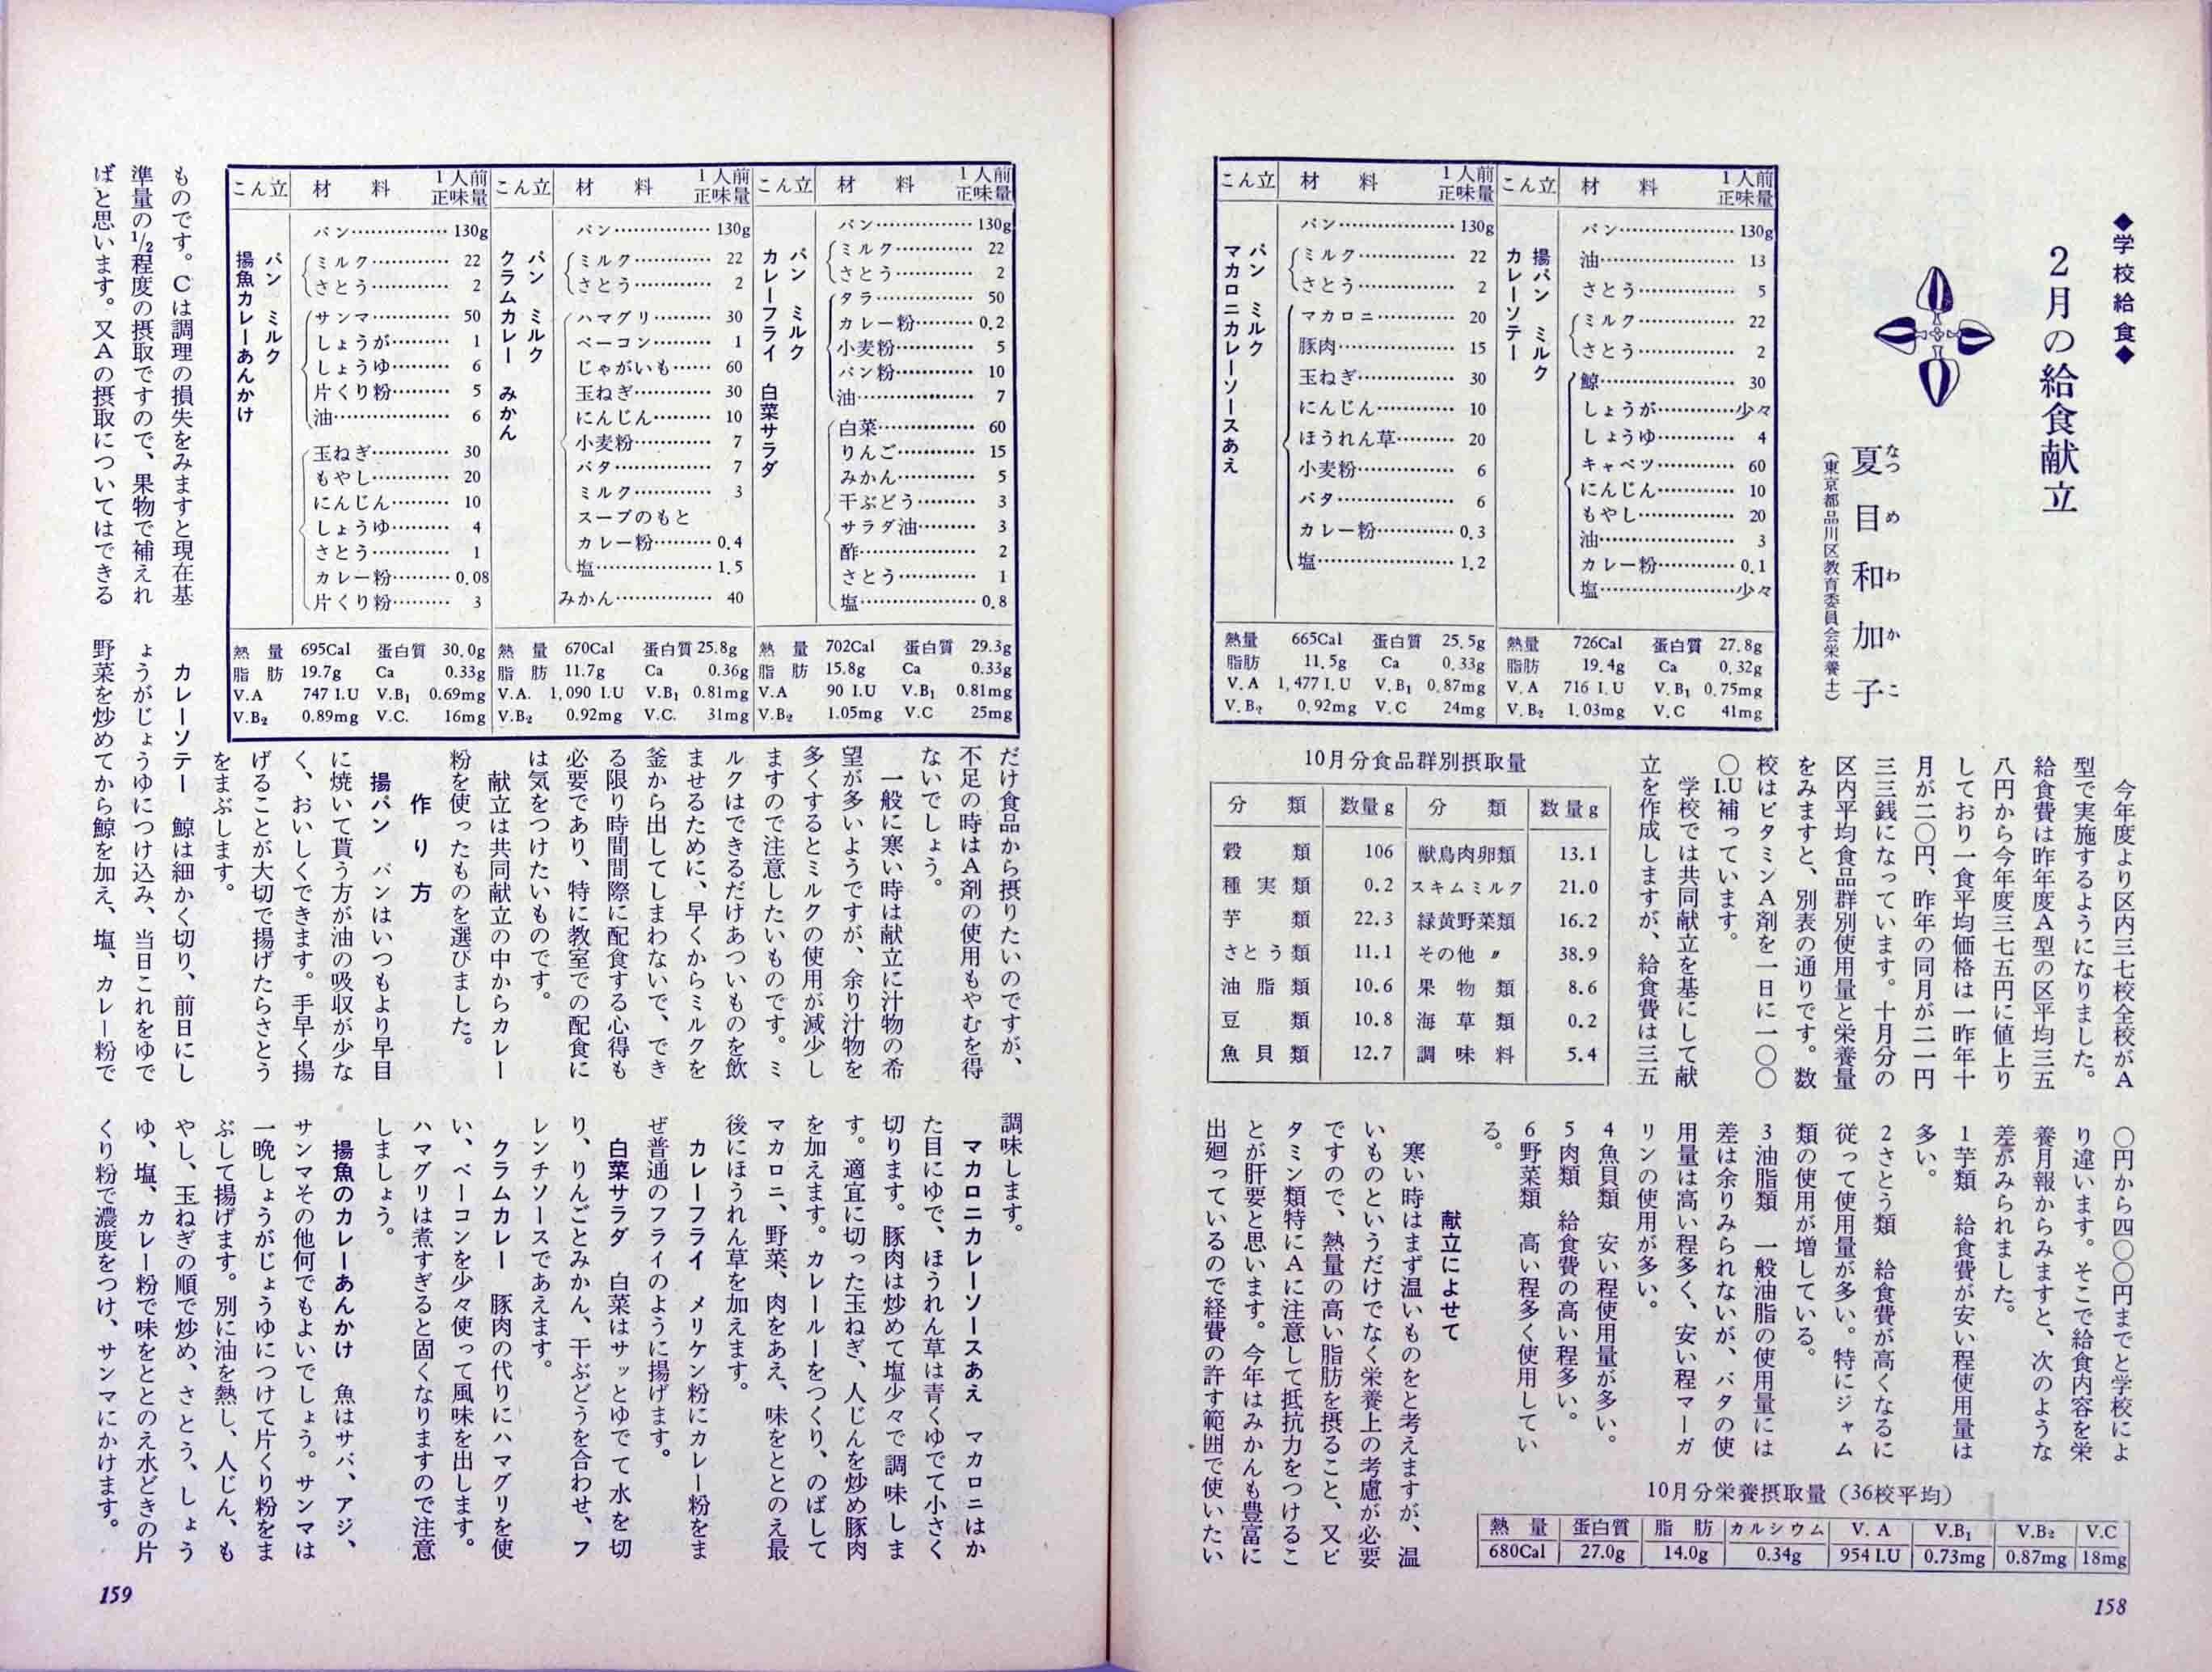 ◆学校給食◆
2月の給食献立
夏目和加子
なつめわかこ
（東京都品川区教育委員会栄養士）
こん立 材料 1人前正味量
揚パン ミルク
カレーソテー
パン……130g
油……13
さとう……5
ミルク……22
さとう……2
鯨……30
しょうが……少々
しょうゆ……4
キャベツ……60
にんじん……10
もやし……20
油……3
カレー粉……0.1
塩……少々
熱量 726Cal 蛋白質 27.8g
脂肪 19.4g Ca 0.32g
V.A 716 I.U V.B₁ 0.75mg
V.B₂ 1.03mg V.C 41mg
こん立 材料 1人前正味量
パン ミルク
マカロニカレーソースあえ
パン……130g
ミルク……22
さとう……2
マカロニ……20
豚肉……15
玉ねぎ……30
にんじん……10
ほうれん草……20
小麦粉……6
バタ……6
カレー粉……0.3
塩……1.2
熱量 665Cal 蛋白質 25.5g
脂肪 11.5g Ca 0.33g
V.A 1,477 I.U V.B₁ 0.87mg
V.B₂ 0.92mg V.C 24mg
今年度より区内三七校全校がA
型で実施するようになりました。
給食費は昨年度A型の区平均三五
八円から今年度三七五円に値上り
しており一食平均価格は一昨年十
月が二〇円、昨年の同月が二一円
三三銭になっています。十月分の
区内平均食品群別使用量と栄養量
をみますと、別表の通りです。数
校はビタミンA剤を一日に一〇〇
〇I.U補っています。
学校では共同献立を基にして献
立を作成しますが、給食費は三五
10月分食品群別摂取量
分類 数量g 分類 数量g
穀類 106 獣鳥肉卵類 13.1
種実類 0.2 スキムミルク 21.0
芋類 22.3 緑黄野菜類 16.2
さとう類 11.1 その他〃 38.9
油脂類 10.6 果物類 8.6
豆類 10.8 海草類 0.2
魚貝類 12.7 調味料 5.4
〇円から四〇〇円までと学校によ
り違います。そこで給食内容を栄
養月報からみますと、次のような
差がみられました。
1芋類 給食費が安い程使用量は
多い。
2さとう類 給食費が高くなるに
従って使用量が多い。特にジャム
類の使用が増している。
3油脂類 一般油脂の使用量には
差は余りみられないが、バタの使
用量は高い程多く、安い程マーガ
リンの使用が多い。
4魚貝類 安い程使用量が多い。
5肉類 給食費の高い程多い。
6野菜類 高い程多く使用してい
る。
献立によせて
寒い時はまず温いものをと考えますが、温
いものというだけでなく栄養上の考慮が必要
ですので、熱量の高い脂肪を摂ること、又ビ
タミン類特にAに注意して抵抗力をつけるこ
とが肝要と思います。今年はみかんも豊富に
出廻っているので経費の許す範囲で使いたい
10月分栄養摂取量（36校平均）
熱量 蛋白質 脂肪 カルシウム V.A V.B₁ V.B₂ V.C
680Cal 27.0g 14.0g 0.34g 954 I.U 0.73mg 0.87mg 18mg
158
こん立 材料 1人前正味量
パン ミルク
カレーフライ 白菜サラダ
パン……130g
ミルク……22
さとう……2
タラ……50
カレー粉……0.2
小麦粉……5
パン粉……10
油……7
白菜……60
りんご……15
みかん……5
干ぶどう……3
サラダ油……3
酢……2
さとう……1
塩……0.8
熱量 702Cal 蛋白質 29.3g
脂肪 15.8g Ca 0.33g
V.A 90 I.U V.B₁ 0.81mg
V.B₂ 1.05mg V.C 25mg
こん立 材料 1人前正味量
パン ミルク
クラムカレー みかん
パン……130g
ミルク……22
さとう……2
ハマグリ……30
ベーコン……1
じゃがいも……60
玉ねぎ……30
にんじん……10
小麦粉……7
バタ……7
ミルク……3
スープのもと
カレー粉……0.4
塩……1.5
みかん……40
熱量 670Cal 蛋白質 25.8g
脂肪 11.7g Ca 0.36g
V.A. 1,090 I.U V.B₁ 0.81mg
V.B₂ 0.92mg V.C. 31mg
こん立 材料 1人前正味量
パン ミルク
揚魚カレーあんかけ
パン……130g
ミルク……22
さとう……2
サンマ……50
しょうが……1
しょうゆ……6
片くり粉……5
油……6
玉ねぎ……30
もやし……20
にんじん……10
しょうゆ……4
さとう……1
カレー粉……0.08
片くり粉……3
熱量 695Cal 蛋白質 30.0g
脂肪 19.7g Ca 0.33g
V.A 747 I.U V.B₁ 0.69mg
V.B₂ 0.89mg V.C. 16mg
ものです。Cは調理の損失をみますと現在基
準量の1/2程度の摂取ですので、果物で補えれ
ばと思います。又Aの摂取についてはできる
だけ食品から摂りたいのですが、
不足の時はA剤の使用もやむを得
ないでしょう。
一般に寒い時は献立に汁物の希
望が多いようですが、余り汁物を
多くするとミルクの使用が減少し
ますので注意したいものです。ミ
ルクはできるだけあついものを飲
ませるために、早くからミルクを
釜から出してしまわないで、でき
る限り時間間際に配食する心得も
必要であり、特に教室での配食に
は気をつけたいものです。
献立は共同献立の中からカレー
粉を使ったものを選びました。
作り方
揚パン パンはいつもより早目
に焼いて貰う方が油の吸収が少な
く、おいしくできます。手早く揚
げることが大切で揚げたらさとう
をまぶします。
カレーソテー 鯨は細かく切り、前日にし
ょうがじょうゆにつけ込み、当日これをゆで
野菜を炒めてから鯨を加え、塩、カレー粉で
調味します。
マカロニカレーソースあえ マカロニはか
た目にゆで、ほうれん草は青くゆでて小さく
切ります。豚肉は炒めて塩少々で調味しま
す。適宜に切った玉ねぎ、人じんを炒め豚肉
を加えます。カレールーをつくり、のばして
マカロニ、野菜、肉をあえ、味をととのえ最
後にほうれん草を加えます。
カレーフライ メリケン粉にカレー粉をま
ぜ普通のフライのように揚げます。
白菜サラダ 白菜はサッとゆでて水を切
り、りんごとみかん、干ぶどうを合わせ、フ
レンチソースであえます。
クラムカレー 豚肉の代りにハマグリを使
い、ベーコンを少々使って風味を出します。
ハマグリは煮すぎると固くなりますので注意
しましょう。
揚魚のカレーあんかけ 魚はサバ、アジ、
サンマその他何でもよいでしょう。サンマは
一晩しょうがじょうゆにつけて片くり粉をま
ぶして揚げます。別に油を熱し、人じん、も
やし、玉ねぎの順で炒め、さとう、しょう
ゆ、塩、カレー粉で味をととのえ水どきの片
くり粉で濃度をつけ、サンマにかけます。
159